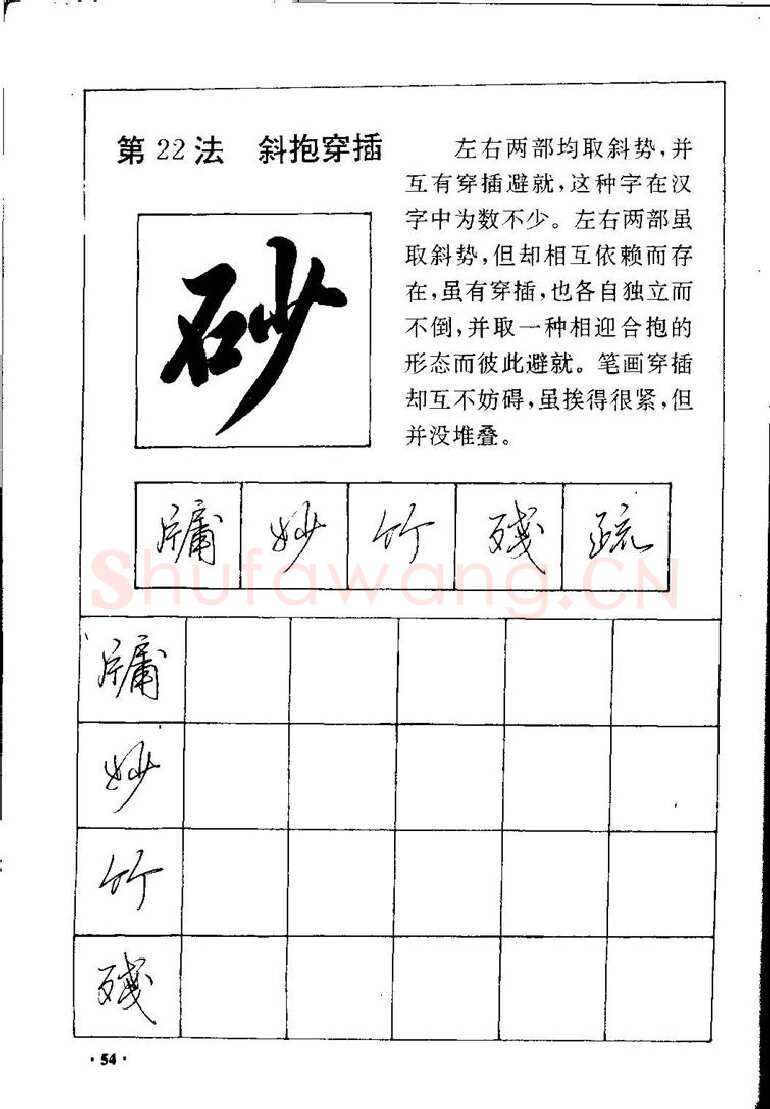 第22法 斜抱穿插
左右两部均取斜势，并
互有穿插避就，这种字在汉
字中为数不少。左右两部虽
取斜势，但却相互依赖而存
在，虽有穿插，也各自独立而
不倒，并取一种相迎合抱的
形态而彼此避就。笔画穿插
却互不妨碍，虽挨得很紧，但
并没堆叠。
砂
牗 妙 竹 残 疏
Shufawang.CN
牗
妙
竹
残
·54·